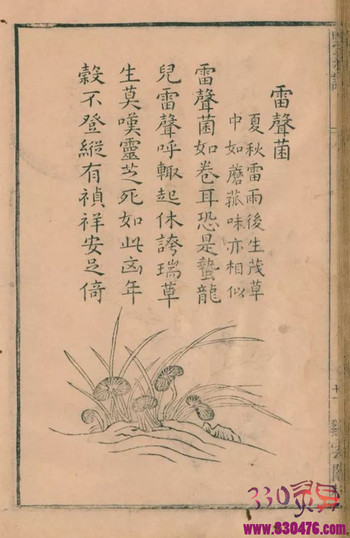 雷聲菌
夏秋雷雨後生茂草
中如蘑菰味亦相似
雷聲菌如卷耳恐是蟄龍
兒雷聲呼輒起休誇瑞草
生莫嘆靈芝死如此凶年
穀不登縱有禎祥安足倚
330
www.930476.com